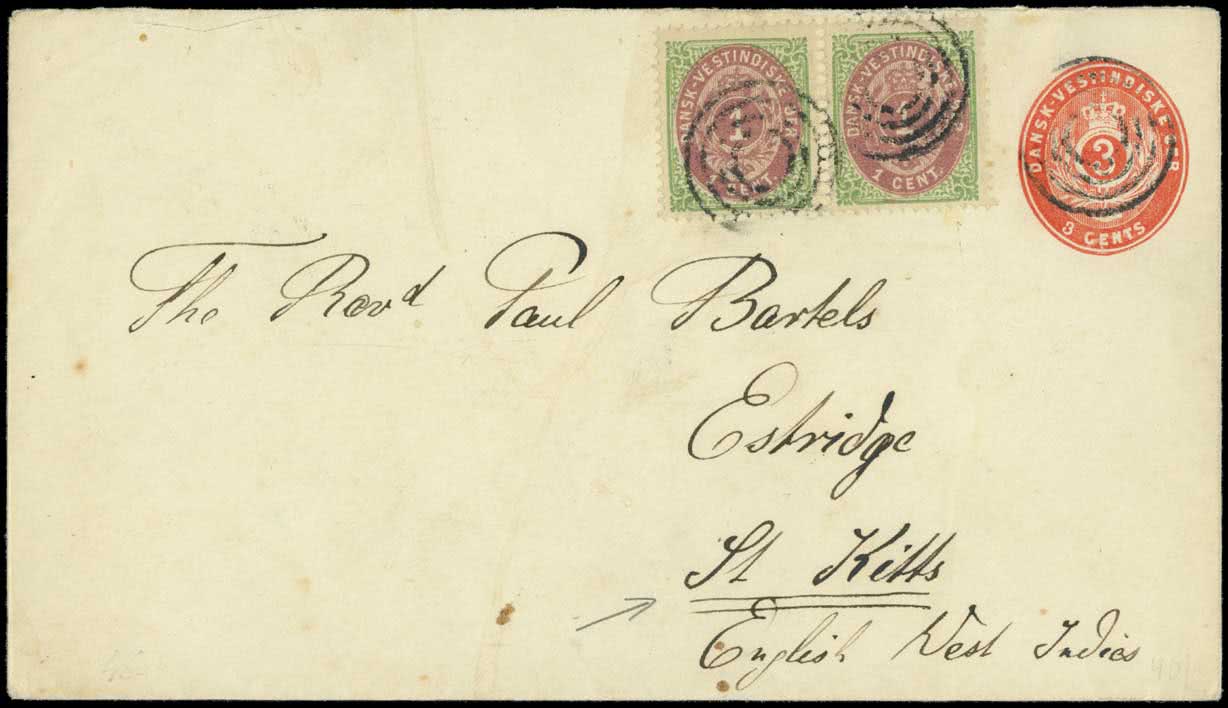 DANSK-VESTINDISKE ØER
1
CENT.
DANSK-VESTINDISKE
1 CENT.
DANSK-VESTINDISKE ØER
3
3 CENTS
The Revd Paul Bartels
Estridge
St Kitts
English West Indies